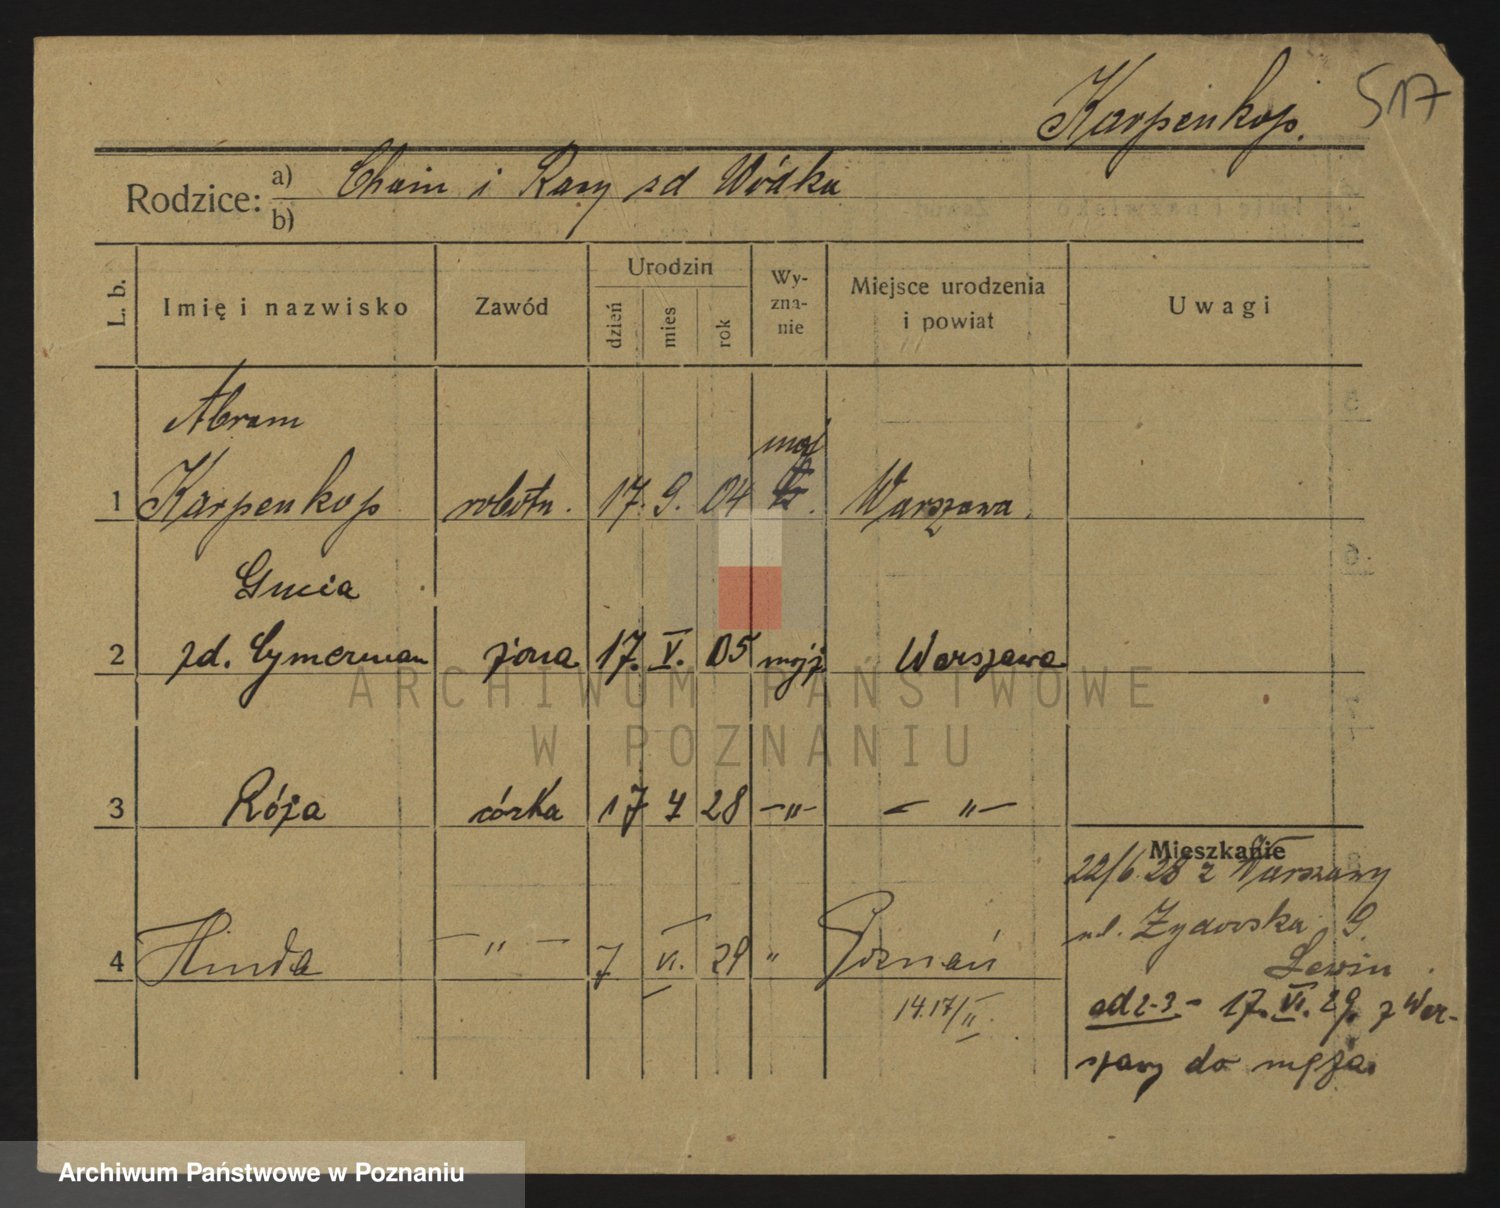 Karpenkop. 517
Rodzice: a) Chaim i Razy zd Wódka
b)
L. b. Imię i nazwisko Zawód Urodzin Wy-zna-nie Miejsce urodzenia i powiat Uwagi
dzień mies rok
Abram
mojż
1 Karpenkop robotn. 17. 9. 04 Warszawa.
Gucia
2 zd. Cymerman żona 17. V. 05 mojż Warszawa
3 Róża córka 17 4 28 -"- - "-
Mieszkanie
22/6. 28 z Warszawy
ul. Żydowska 9.
4 Hinda - " - 7 VI. 29 " Poznań
Lewin
14.17/II.
ad 2-3. - 17. VI. 29. z War-
szawy do męża.
ARCHIWUM PAŃSTWOWE
W POZNANIU
Archiwum Państwowe w Poznaniu